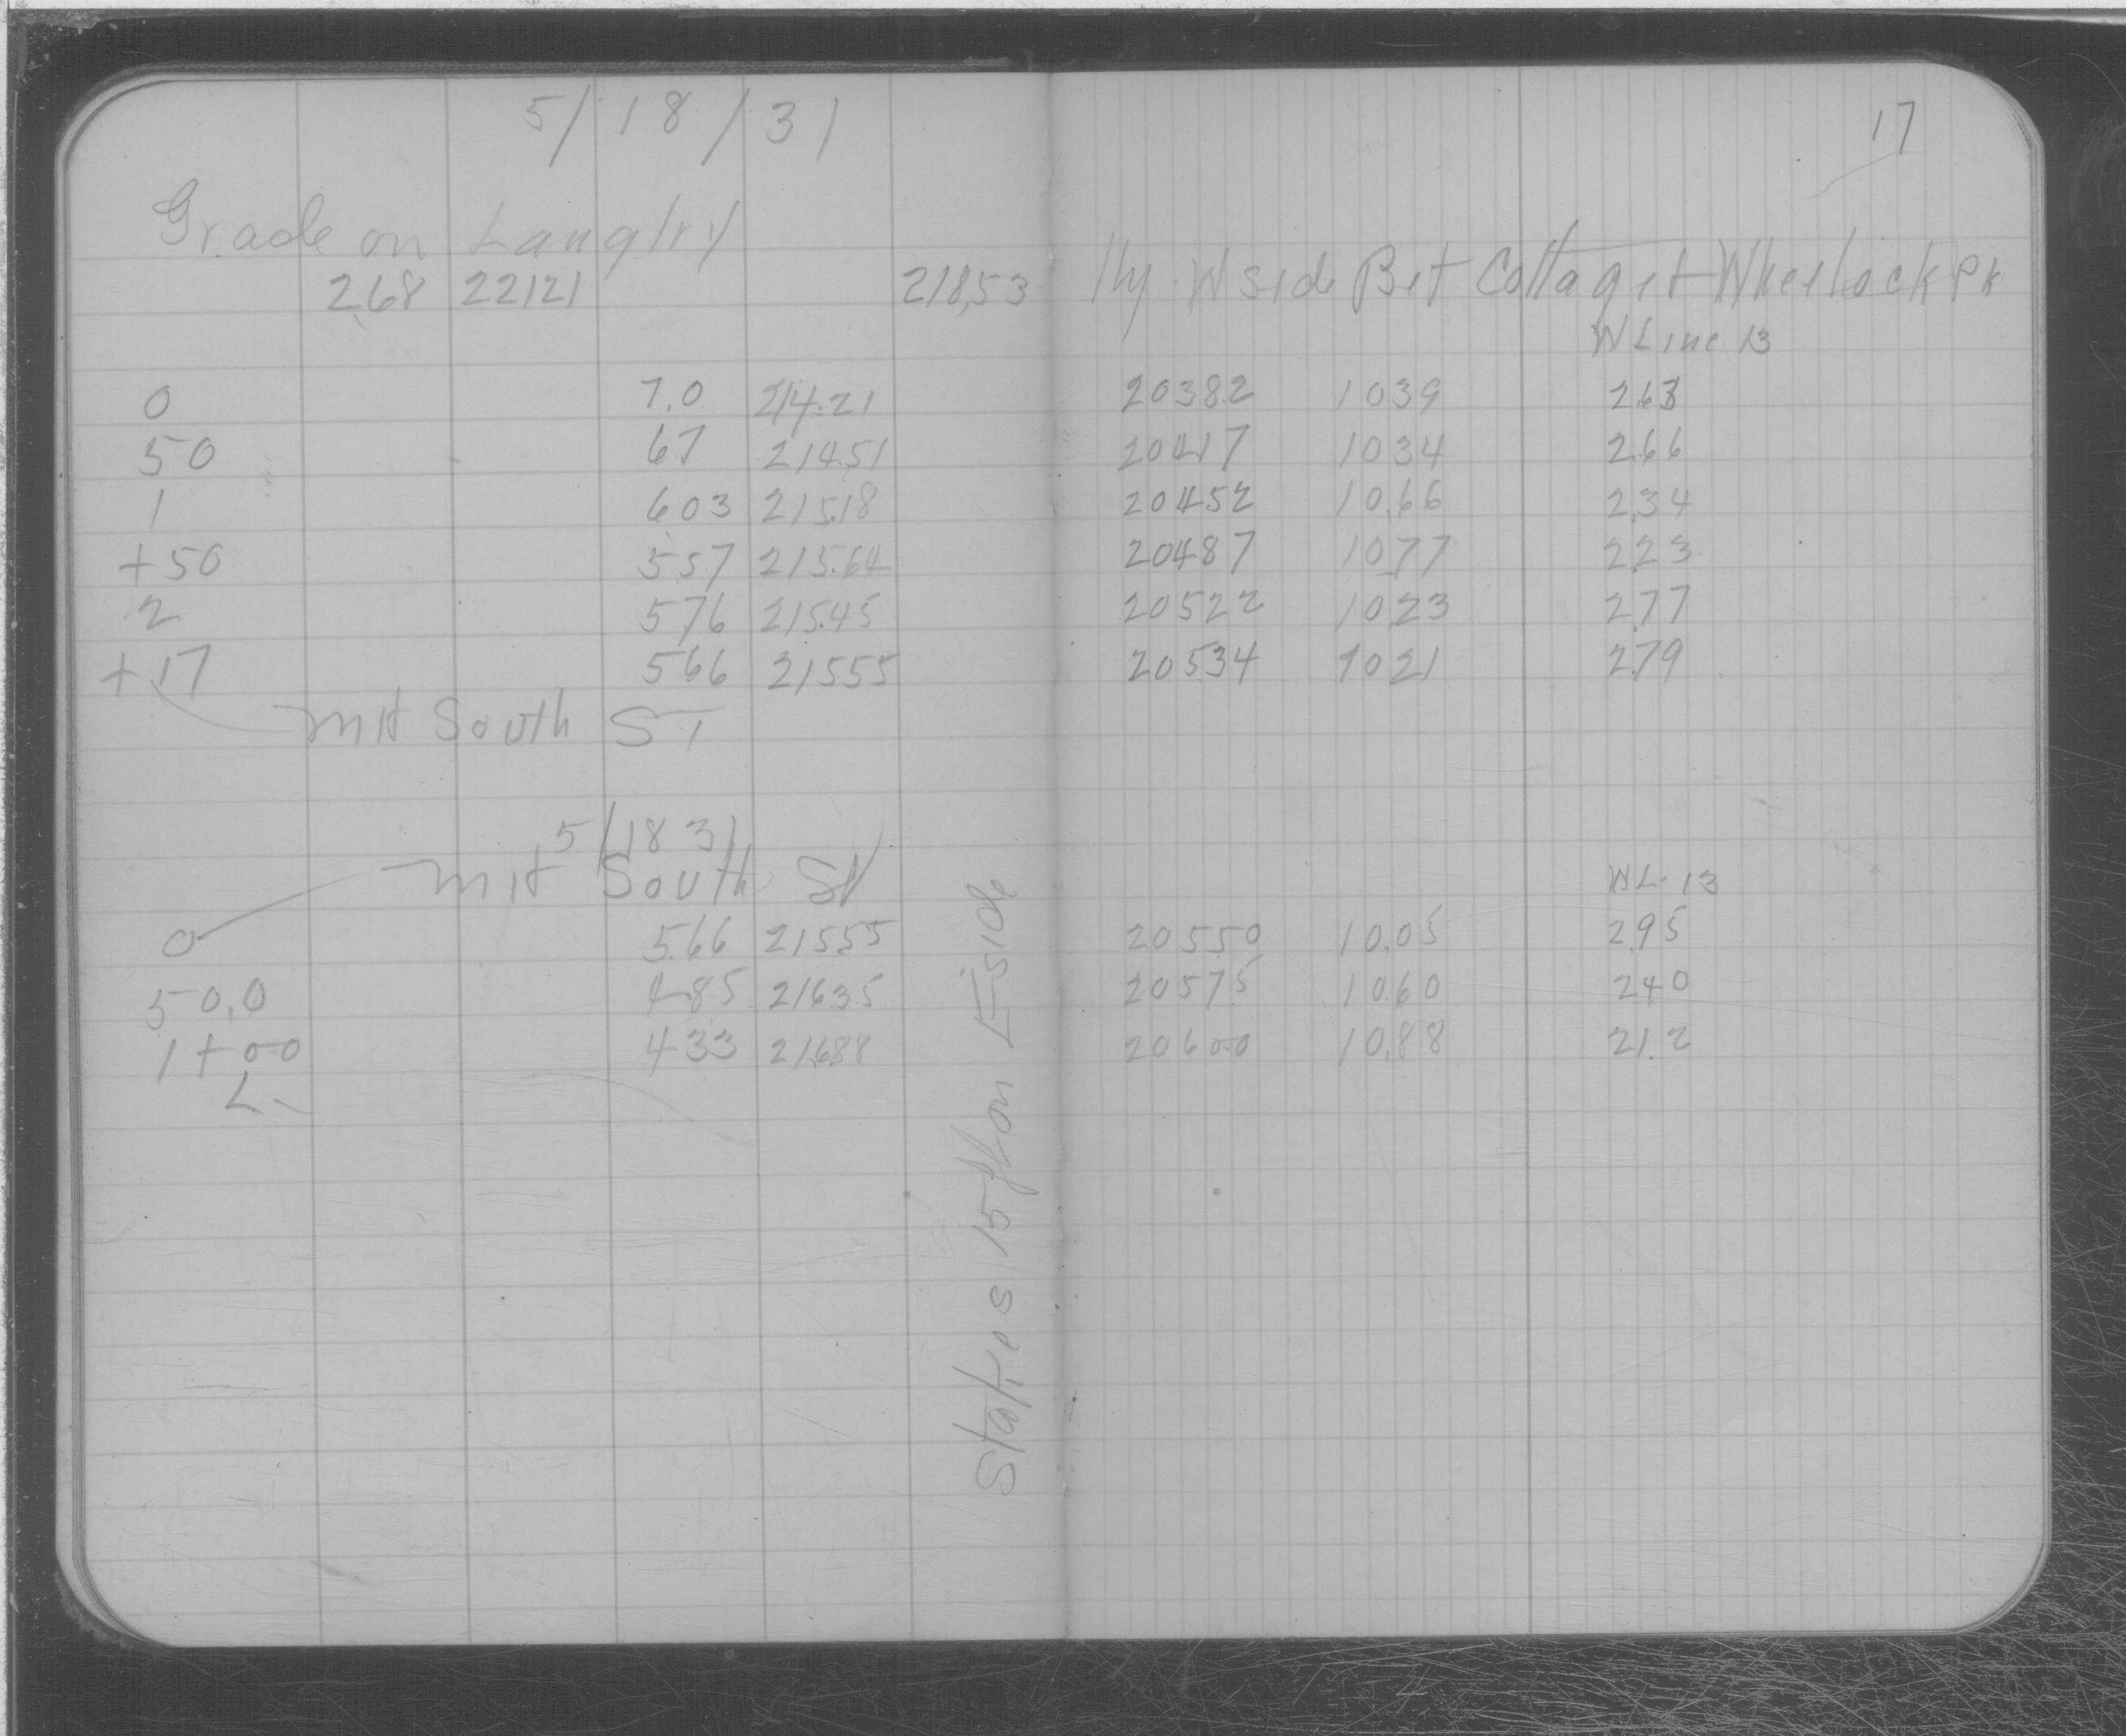 17
5/18/31
Grade on Langlry
268 22121 218,53 Hy. W side Bet Cottage + Wheelock Pk
W Line 13
0 7.0 214.21 20382 1039 263
50 67 214.51 20417 1034 266
1 603 215.18 20452 10.66 2.34
+50 557 215.64 20487 1077 223
2 576 215.45 20522 1023 277
+17 566 21555 20534 1021 279
MH South ST
5/18 31
MH South St WL-13
0 5.66 21555 20550 10.05 295
50.0 485 21635 20575 1060 240
1+00 433 21688 20600 10.88 21.2
L-
15 ft on E side